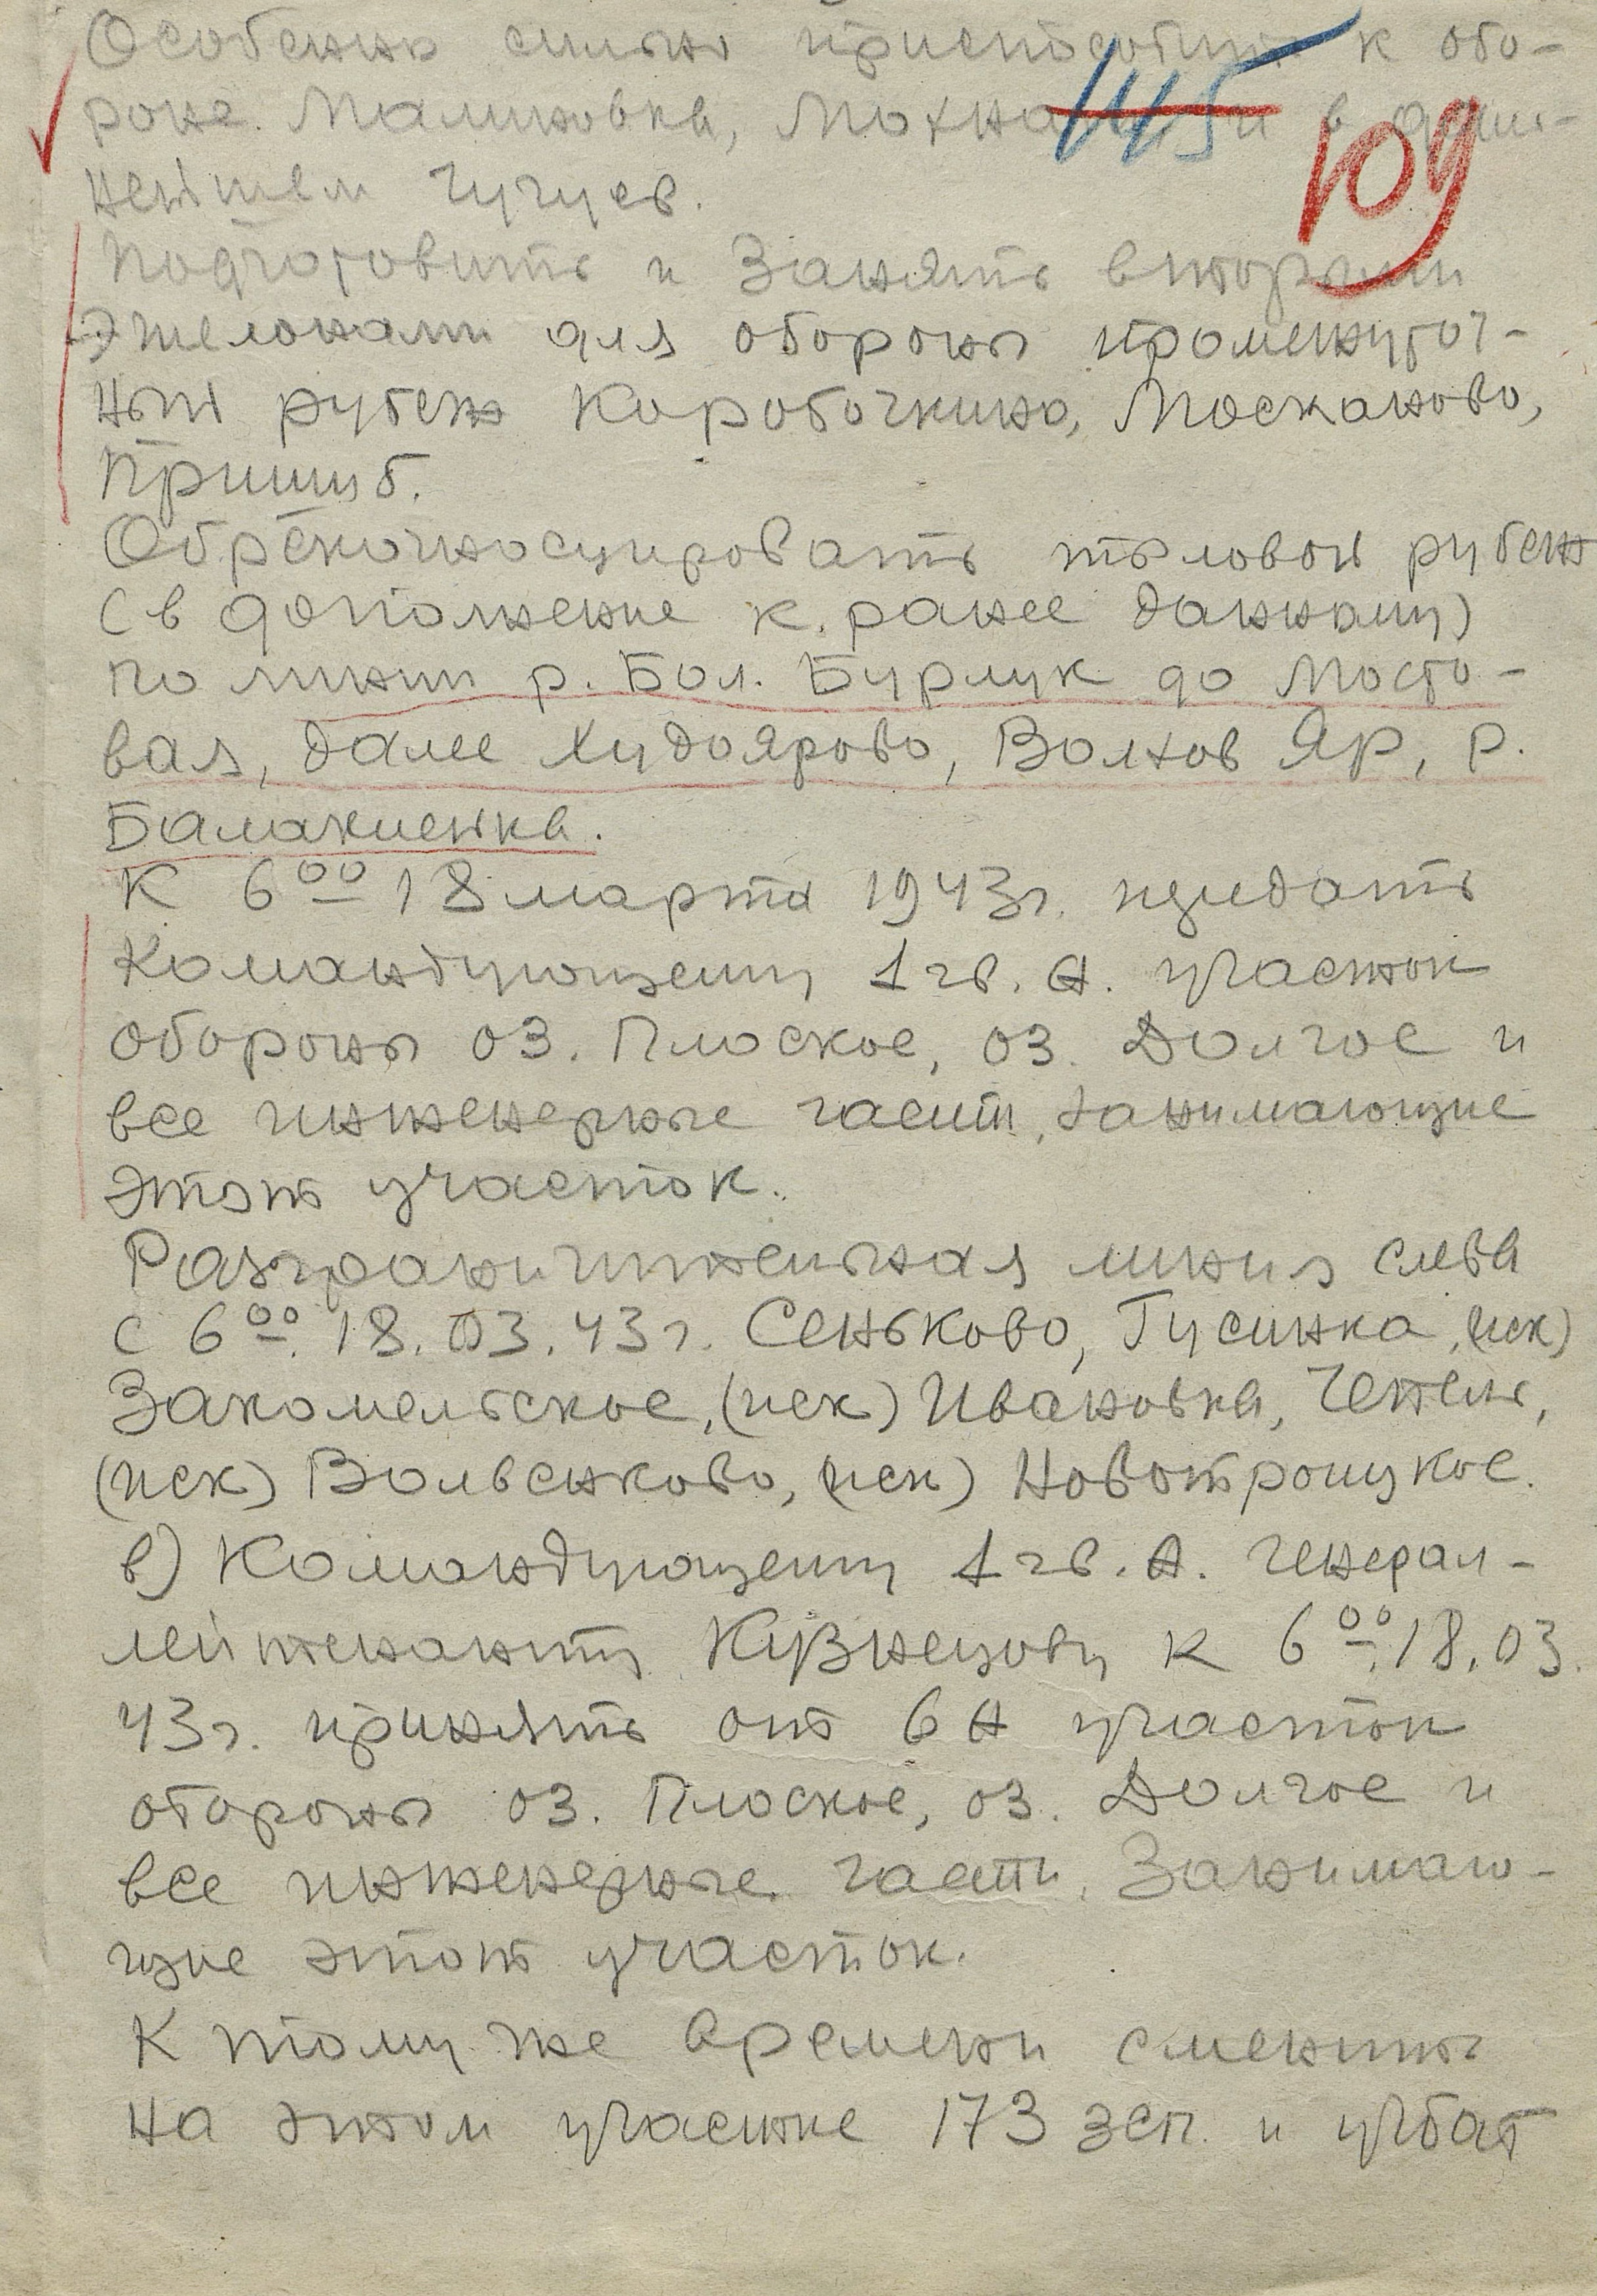 Особенно сильно приспособить к обо-
145
109
роне Малиновка, Мохнач и в даль-
нейшем Чугуев.
Подготовить и занять вторыми
эшелонами для обороны промежуточ-
ный рубеж Коробочкино, Мосьпаново,
Пришиб.
Обрекогносцировать тыловой рубеж
(в дополнение к ранее данному)
по линии р. Бол. Бурлук до Мосто-
вая, далее Худоярово, Волхов Яр, р.
Балаклейка.
К 6⁰⁰ 18 марта 1943г. передать
Командующему 1 гв. А. участок
обороны оз. Плоское, оз. Долгое и
все инженерные части, занимающие
этот участок.
Разграничительная линия слева
с 6⁰⁰ 18.03.43г. Сеньково, Гусинка, (иск)
Закомельское, (иск) Ивановка, Чепель,
(иск) Волвенково, (иск) Новотроицкое.
в) Командующему 1 гв. А. генерал-
лейтенанту Кузнецову к 6⁰⁰ 18.03.
43г. принять от 6 А участок
обороны оз. Плоское, оз. Долгое и
все инженерные части, занимаю-
щие этот участок.
К тому же времени сменить
на этом участке 173 зсп. и учбат